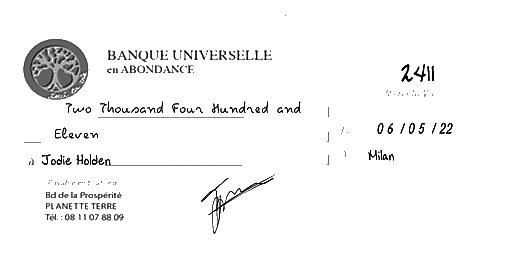 BANQUE UNIVERSELLE
en ABONDANCE
2411
Two Thousand Four Hundred and
Eleven
06/05/22
à Jodie Holden
Milan
Bd de la Prospérité
PLANETTE TERRE
Tél. : 08 11 07 88 09